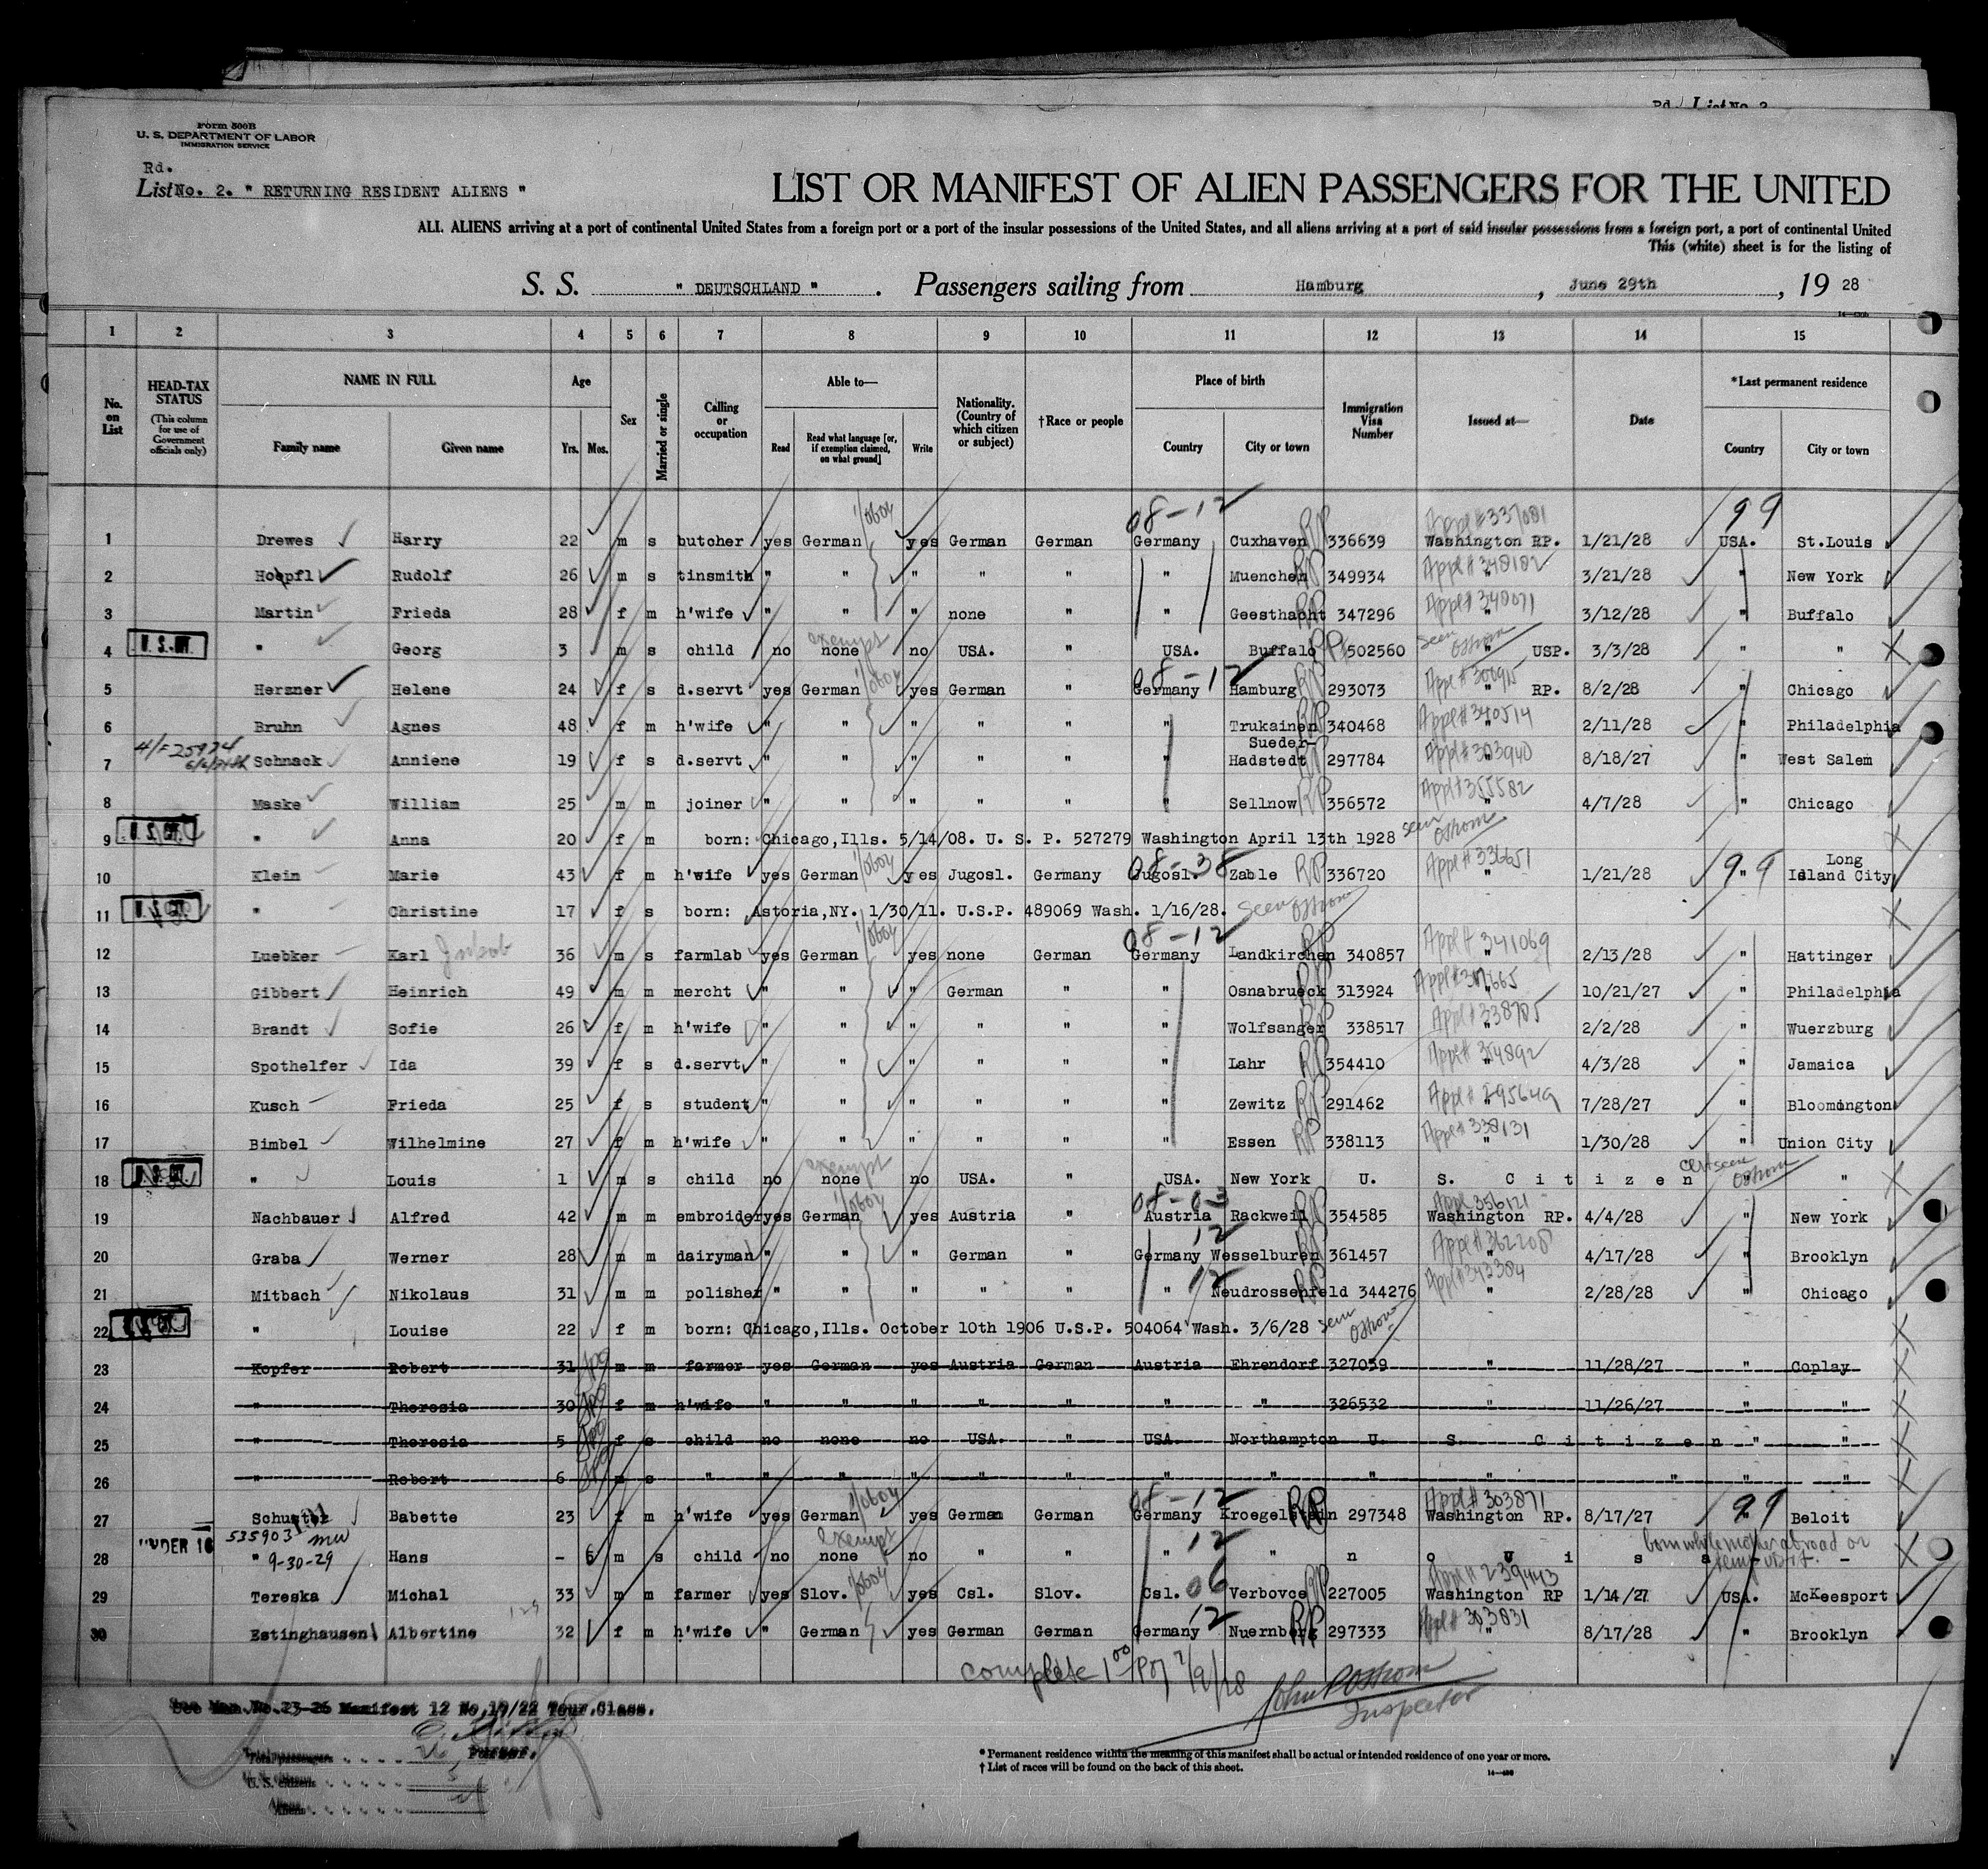 Rd. List No. 2
Form 500B
U. S. DEPARTMENT OF LABOR
IMMIGRATION SERVICE
Rd.
List No. 2. " RETURNING RESIDENT ALIENS "
LIST OR MANIFEST OF ALIEN PASSENGERS FOR THE UNITED
ALL ALIENS arriving at a port of continental United States from a foreign port or a port of the insular possessions of the United States, and all aliens arriving at a port of said insular possessions from a foreign port, a port of continental United
This (white) sheet is for the listing of
S. S. " DEUTSCHLAND " . Passengers sailing from Hamburg , June 29th , 19 28
1 2 3 4 5 6 7 8 9 10 11 12 13 14 15
No. on List
HEAD-TAX STATUS (This column for use of Government officials only)
NAME IN FULL Family name Given name
Age Yrs. Mos.
Sex
Married or single
Calling or occupation
Able to— Read Read what language [or, if exemption claimed, on what ground] Write
Nationality. (Country of which citizen or subject)
†Race or people
Place of birth Country City or town
Immigration Visa Number
Issued at—
Date
*Last permanent residence Country City or town
08-12 Appl# 337081 99
1 Drewes Harry 22 m s butcher yes German yes German German Germany Cuxhaven RP 336639 Washington RP. 1/21/28 USA. St.Louis
2 Hoepfl Rudolf 26 m s tinsmith " " " " " " Muenchen RP 349934 Appl# 348182 " 3/21/28 " New York
3 Martin Frieda 28 f m h'wife " " " none " " Geesthacht RP 347296 Appl# 340071 " 3/12/28 " Buffalo
4 U. S. CIT. " Georg 3 m s child no exempt none no USA. " USA. Buffalo 502560 seen Ostrom " USP. 3/3/28 " "
08-12
5 Herzner Helene 24 f s d.servt yes German yes German " Germany Hamburg RP 293073 Appl# 300915 " RP. 8/2/28 " Chicago
6 Bruhn Agnes 48 f m h'wife " " " " " " Trukainen RP 340468 Appl# 340514 " 2/11/28 " Philadelphia
7 Schnack Anniene 19 f s d.servt " " " " " " Sueder- Hadstedt RP 297784 Appl# 303940 " 8/18/27 " West Salem
8 Maske William 25 m m joiner " " " " " " Sellnow RP 356572 Appl# 355582 " 4/7/28 " Chicago
9 U. S. CIT. " Anna 20 f m born: Chicago,Ills. 5/14/08. U. S. P. 527279 Washington April 13th 1928 seen Ostrom
10 Klein Marie 43 f m h'wife yes German yes Jugosl. Germany 08-38 Jugosl. Zable RP 336720 Appl# 336651 " 1/21/28 99 " Long Island City
11 U. S. CIT. " Christine 17 f s born: Astoria,NY. 1/30/11. U.S.P. 489069 Wash. 1/16/28. seen Ostrom
08-12
12 Luebker Karl Jakob 36 m s farmlab yes German yes none German Germany Landkirchen RP 340857 Appl# 341069 " 2/13/28 " Hattinger
13 Gibbert Heinrich 49 m m mercht " " " German " " Osnabrueck RP 313924 " 10/21/27 " Philadelphia
14 Brandt Sofie 26 f m h'wife " " " " " " Wolfsanger RP 338517 Appl# 338705 " 2/2/28 " Wuerzburg
15 Spothelfer Ida 39 f s d.servt " " " " " " Lahr RP 354410 Appl# 354892 " 4/3/28 " Jamaica
16 Kusch Frieda 25 f s student " " " " " " Zewitz RP 291462 Appl# 295649 " 7/28/27 " Bloomington
17 Bimbel Wilhelmine 27 f m h'wife " " " " " " Essen RP 338113 Appl# 338131 " 1/30/28 " Union City
18 U. S. CIT. " Louis 1 m s child no exempt none no USA. " USA. New York U. S. Citizen cert seen Ostrom " "
08-03
19 Nachbauer Alfred 42 m m embroider yes German yes Austria " Austria Rackweil RP 354585 Appl 356121 Washington RP. 4/4/28 " New York
20 Graba Werner 28 m m dairyman " " " German " 12 Germany Wesselburen RP 361457 Appl# 362208 " 4/17/28 " Brooklyn
21 Mitbach Nikolaus 31 m m polisher " " " " " " 12 Neudrossenfeld RP 344276 Appl# 343384 " 2/28/28 " Chicago
22 " Louise 22 f m born: Chicago,Ills. October 10th 1906 U.S.P. 504064 Wash. 3/6/28 seen Ostrom
23 Kopfer Robert 31 m m farmer yes German yes Austria German Austria Ehrendorf 327059 " 11/28/27 " Coplay
24 " Theresia 30 f m h'wife " " " " " " " 326532 " 11/26/27 " "
25 " Theresia 5 f s child no none no USA. " USA. Northampton U. S. Citizen " "
26 " Robert 6 m s " " " " " " " " " " " " "
08-12
27 Schuster Babette 23 f m h'wife yes German yes German German Germany Kroegelstein RP 297348 Appl# 303871 Washington RP. 8/17/27 99 " Beloit
535903 mw
28 UNDER 16 " 9-30-29 Hans - 6 m s child no exempt none no " " " 12 " no Visa born while mother abroad on temp. visit. -
29 Tereska Michal 33 m m farmer yes Slov. yes Csl. Slov. Csl. 06 Verbovce RP 227005 Appl# 239443 Washington RP 1/14/27 USA. McKeesport
30 Estinghausen Albertine 32 f m h'wife " German yes German German Germany 12 Nuernberg RP 297333 Appl# 303831 " 8/17/28 " Brooklyn
complete 7/9/28
John P Ostrom
Inspector
See Man.No.23-26 Manifest 12 No.19/22 Tour.Class.
Purser.
Total passengers
U. S. citizens 5
Aliens
* Permanent residence within the meaning of this manifest shall be actual or intended residence of one year or more.
† List of races will be found on the back of this sheet.